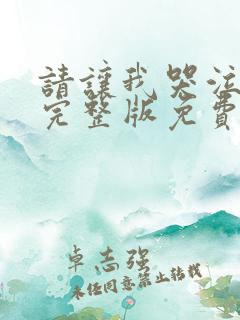 請讓我哭泣
完整版免費
卓志强
未任同意禁止轉載